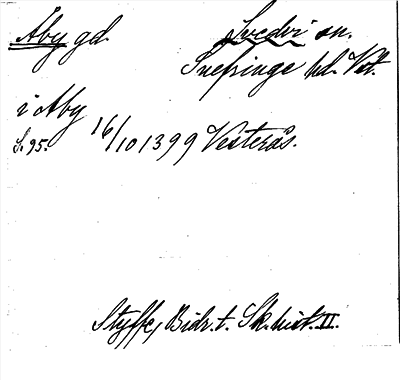 Åby gd.
Svedvi sn.
Snefringe hd. Vstm.
i Aby
S. 95.
16/10 1399 Vesterås.
Styffe, Bidr. t. Sk. hist. II.